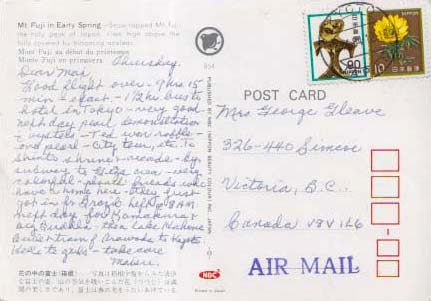 Mt. Fuji in Early Spring — Snow-capped Mt. Fuji,
the holy peak of Japan, rises high above the
hills covered by blooming azaleas.
Mont Fuji au début du printemps
Monte Fuji en primavera
854
Thursday.
Dear Mai,
Good flight over - 9 hrs 15
min - exact - 1 1/2 hr bus to
hotel in Tokyo - very good.
next day pearl demonstration
& oysters - Ted won raffle -
one pearl - City tour, etc. To
shinto shrine & arcade - by
subway to Ginza area - very
colorful - friends we
have to home here - they just
got in fr Brazil. Left @ 8 AM
next day for Kamakura &
big Buddha - then Lake Hakone
Bullet train fr to Kyoto.
love to girls - take care
花の中の富士(箱根)
POST CARD
Mrs George Gleave
326-440 Simcoe
Victoria, B.C..
Canada V8V 1L6
AIR MAIL
日本郵便
NIPPON
90
日本郵便
NIPPON
10
NBC
Printed in Japan